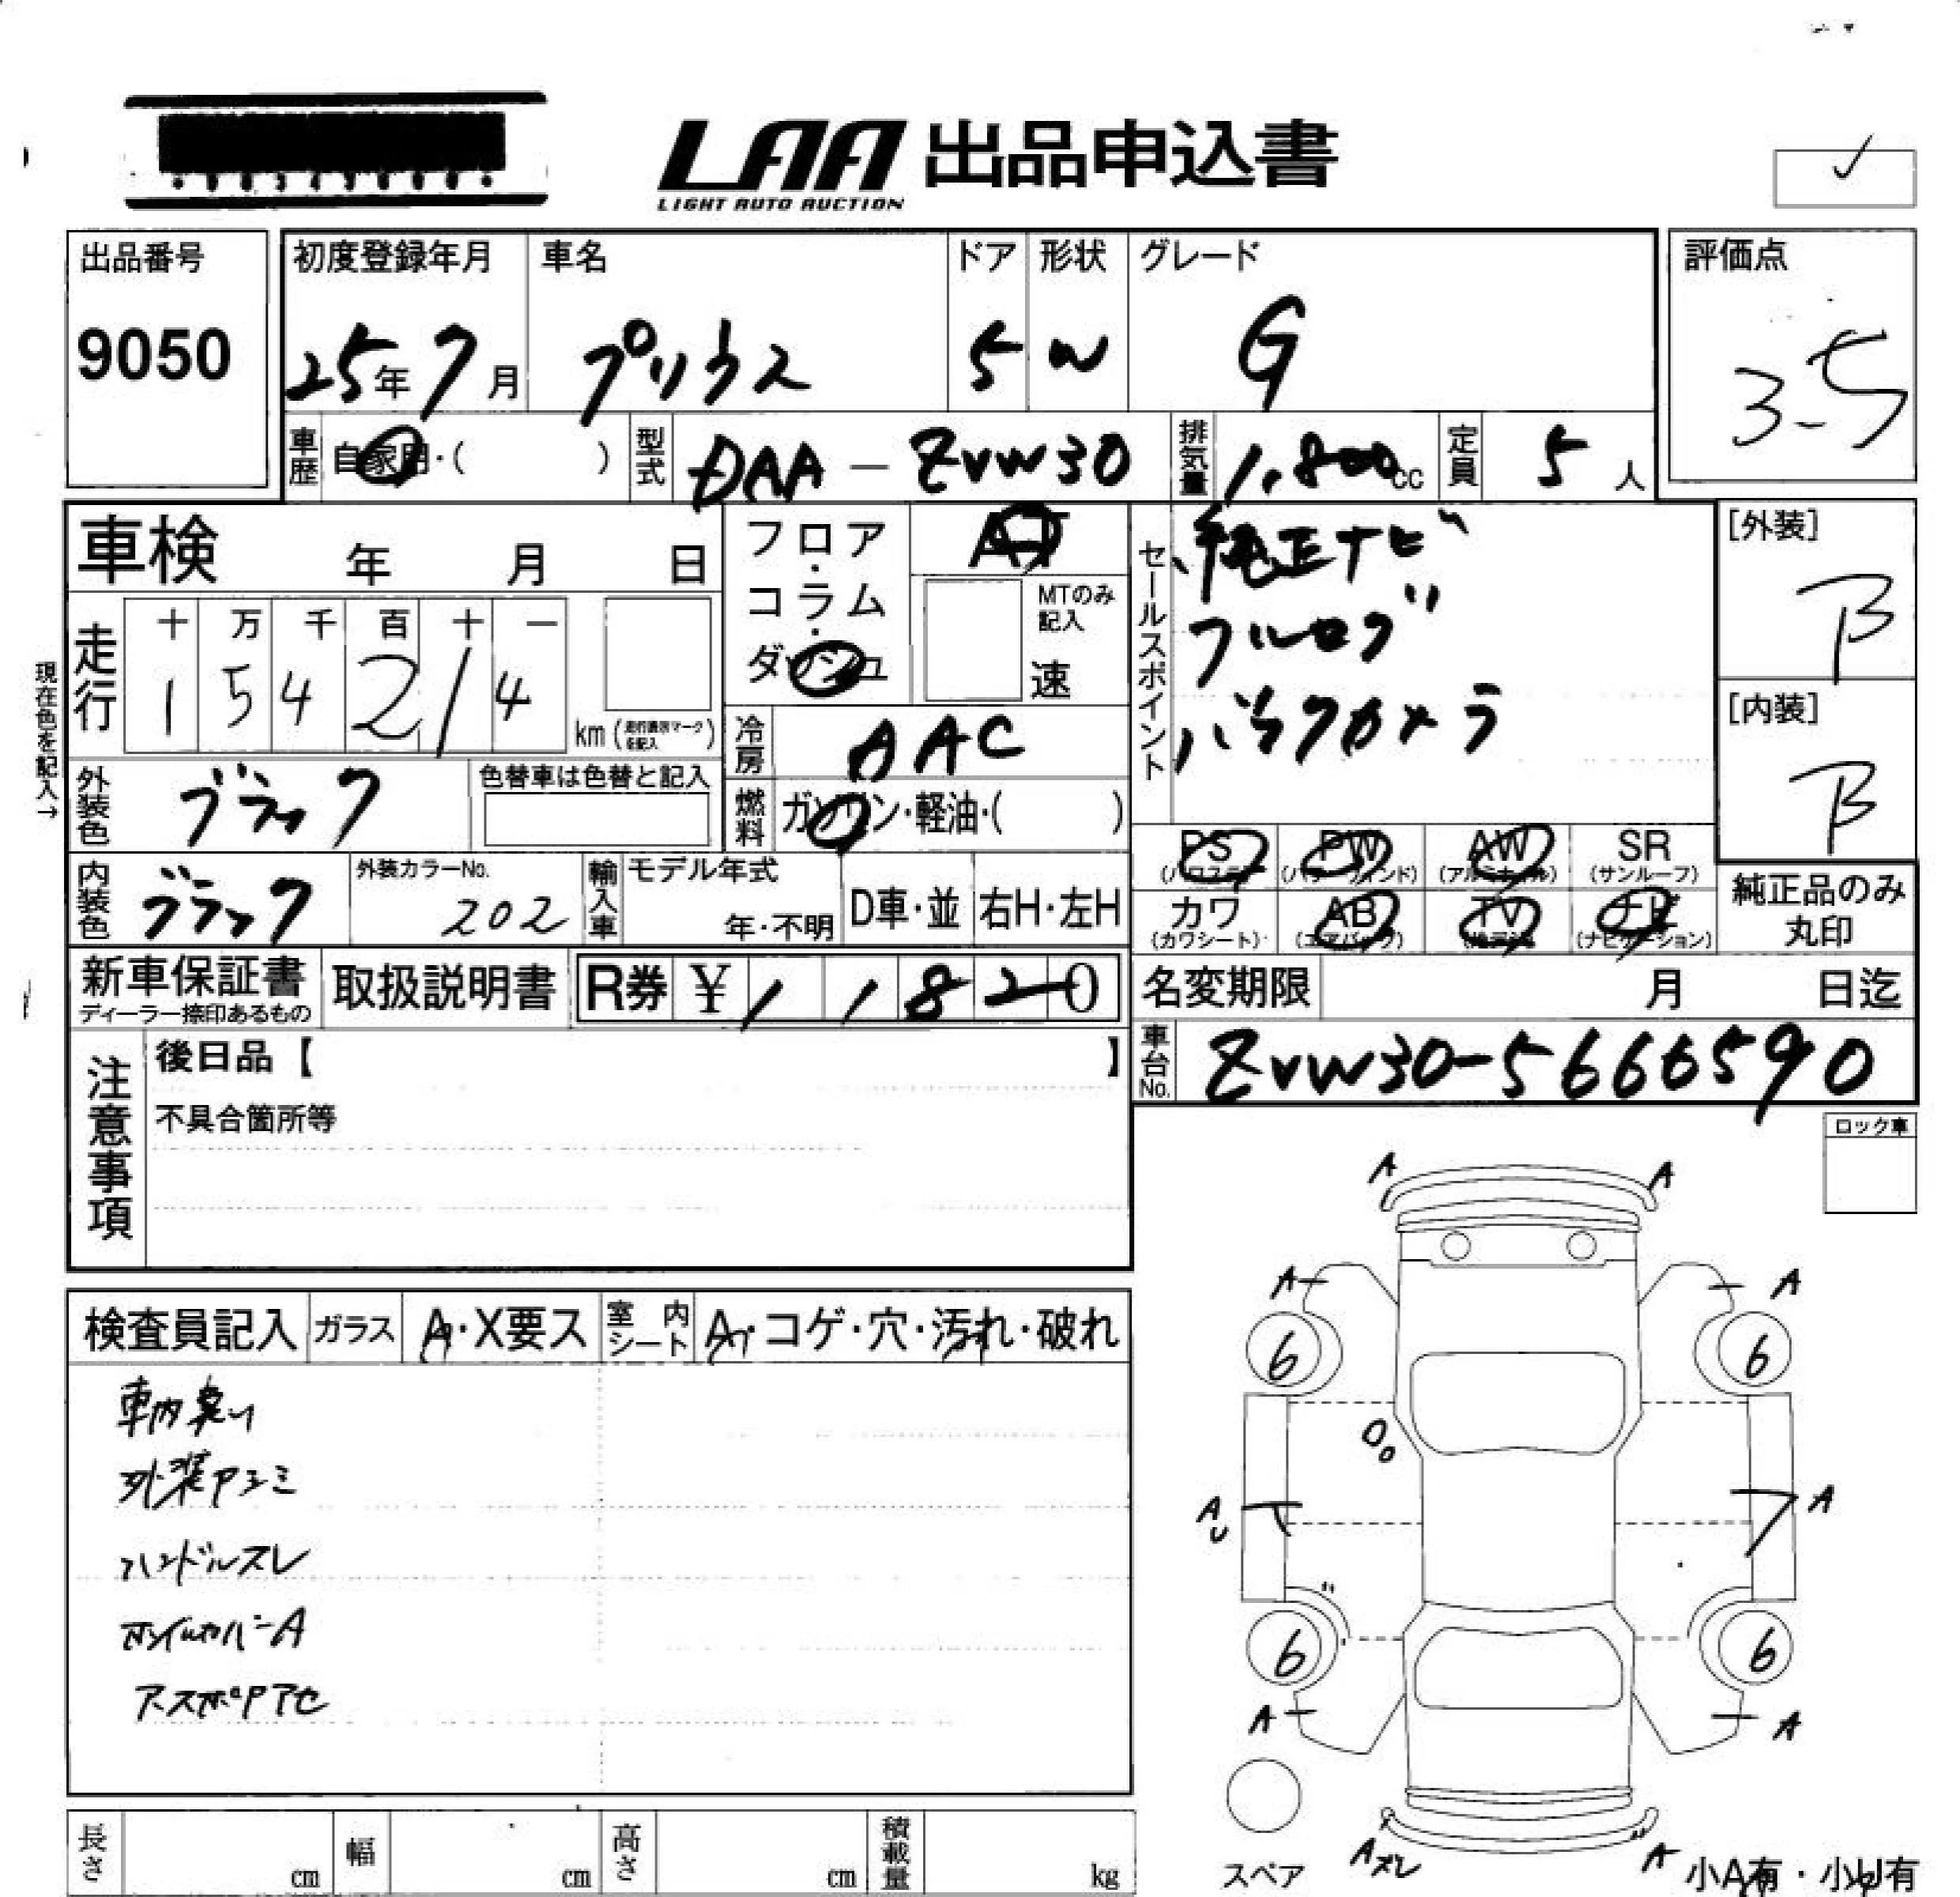 LAA 出品申込書
LIGHT AUTO AUCTION
出品番号
9050
初度登録年月
25年7月
車名
プリウス
ドア
5
形状
W
グレード
G
評価点
3.5
車歴
自家用・( )
型式
DAA-ZVW30
排気量
1,800cc
定員
5人
車検 年 月 日
フロア・コラム・ダッシュ
AT
MTのみ記入
速
セールスポイント
純正ナビ
フルセグ
バックカメラ
[外装]
B
[内装]
B
現在色を記入→
走行
十 万 千 百 十 一
1 5 4 2 1 4
km
冷房
AAC
外装色
ブラック
色替車は色替と記入
燃料
ガソリン・軽油・( )
PS PW AW SR
(パワステ) (パワーウインド) (アルミホイル) (サンルーフ)
カワ AB TV ナビ
(カワシート) (エアバッグ) (ナビゲーション)
純正品のみ
丸印
内装色
ブラック
外装カラーNo.
202
輸入車
モデル年式
年・不明
D車・並
右H・左H
新車保証書
ディーラー捺印あるもの
取扱説明書
R券 ¥11820
名変期限 月 日迄
車台No.
ZVW30-5666590
注意事項
後日品【 】
不具合箇所等
ロック車
検査員記入
ガラス
A・X要ス
室内シート
A・コゲ・穴・汚れ・破れ
車内臭い
外装アシミ
ハンドルスレ
ホイルカバーA
A A
A A
6 6
A A
6 6
A A
スペア
Aズレ A
小A有・小U有
長さ cm
幅 cm
高さ cm
積載量 kg